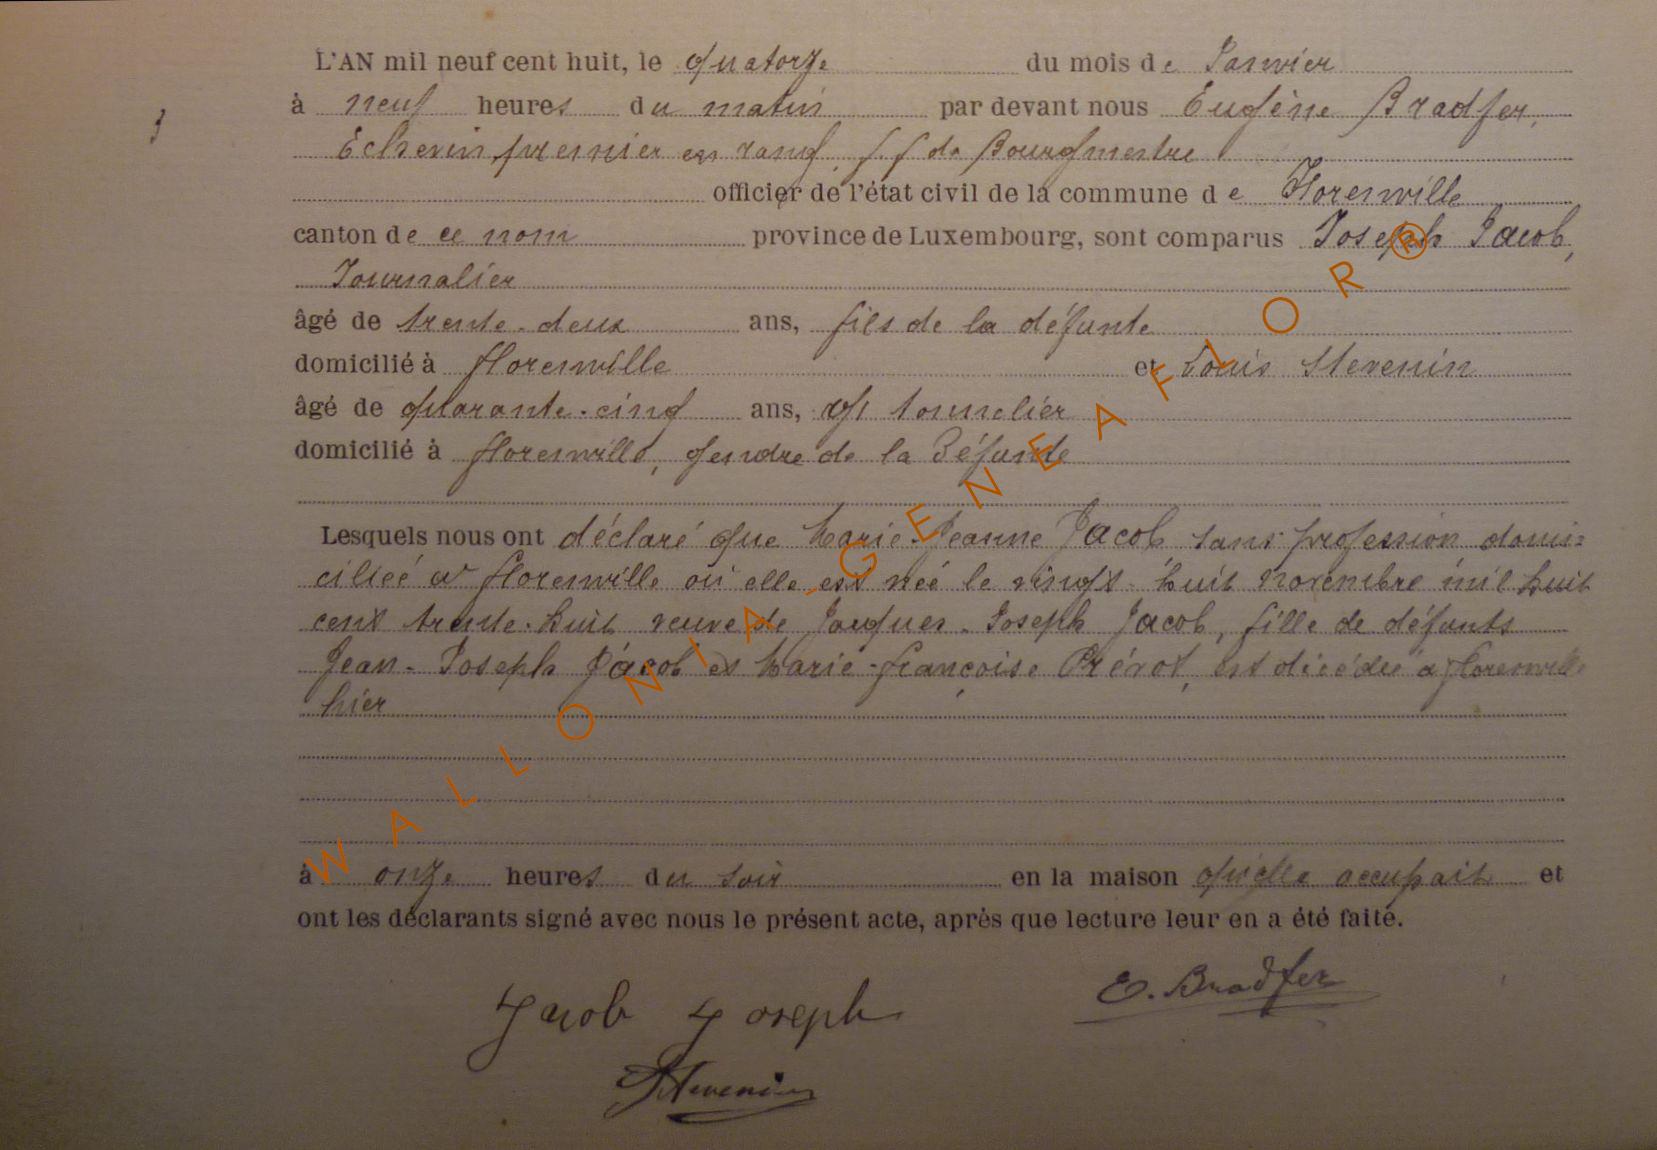 L'AN mil neuf cent huit, le quatorze du mois de Janvier
à neuf heures du matin par devant nous Eugène Bradfer,
Echevin premier en rang f.f de Bourgmestre
officier de l'état civil de la commune de Florenville
canton de ce nom province de Luxembourg, sont comparus Joseph Jacob,
Journalier
âgé de trente-deux ans, fils de la défunte
domicilié à Florenville et Louis Stevenin
âgé de quarante-cinq ans, tonnelier
domicilié à Florenville, gendre de la Défunte
Lesquels nous ont déclaré que Marie-Jeanne Jacob sans profession domi=
ciliée à Florenville où elle est née le vingt-huit novembre mil huit
cent trente-huit veuve de Jacques-Joseph Jacob, fille de défunts
Jean-Joseph Jacob et Marie-françoise Prévot, est décédée à Florenville
hier
à onze heures du soir en la maison qu'elle occupait et
ont les déclarants signé avec nous le présent acte, après que lecture leur en a été faite.
E. Bradfer
Jacob Joseph
Stevenin
WALLONIA-GENEAFLOR®